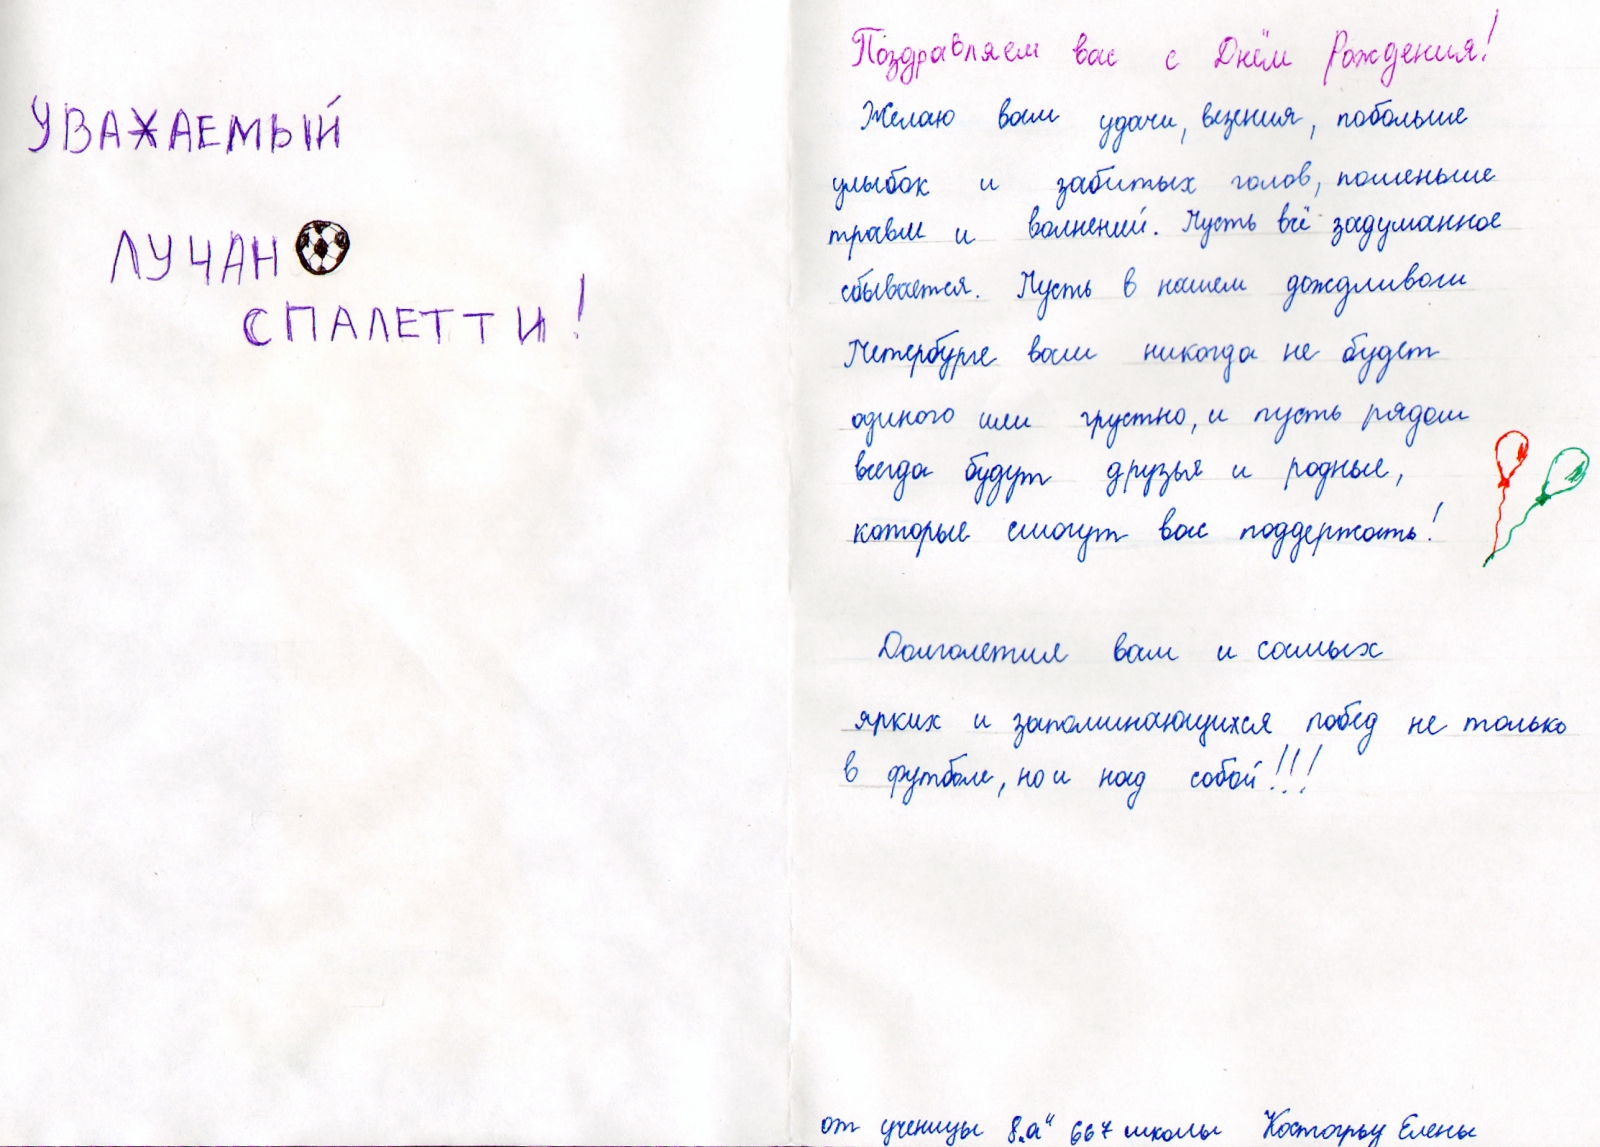 УВАЖАЕМЫЙ
ЛУЧАН
СПАЛЕТТИ!
Поздравляем вас с Днём Рождения!
Желаю вам удачи, везения, побольше
улыбок и забитых голов, поменьше
травм и волнений. Пусть всё задуманное
сбывается. Пусть в нашем дождливом
Петербурге вам никогда не будет
одиного или грустно, и пусть рядом
всегда будут друзья и родные,
которые смогут вас поддержать!
Долголетия вам и самых
ярких и запоминающихся побед не только
в футболе, но и над собой!!!
от ученицы 8„а“ 667 школы Елены